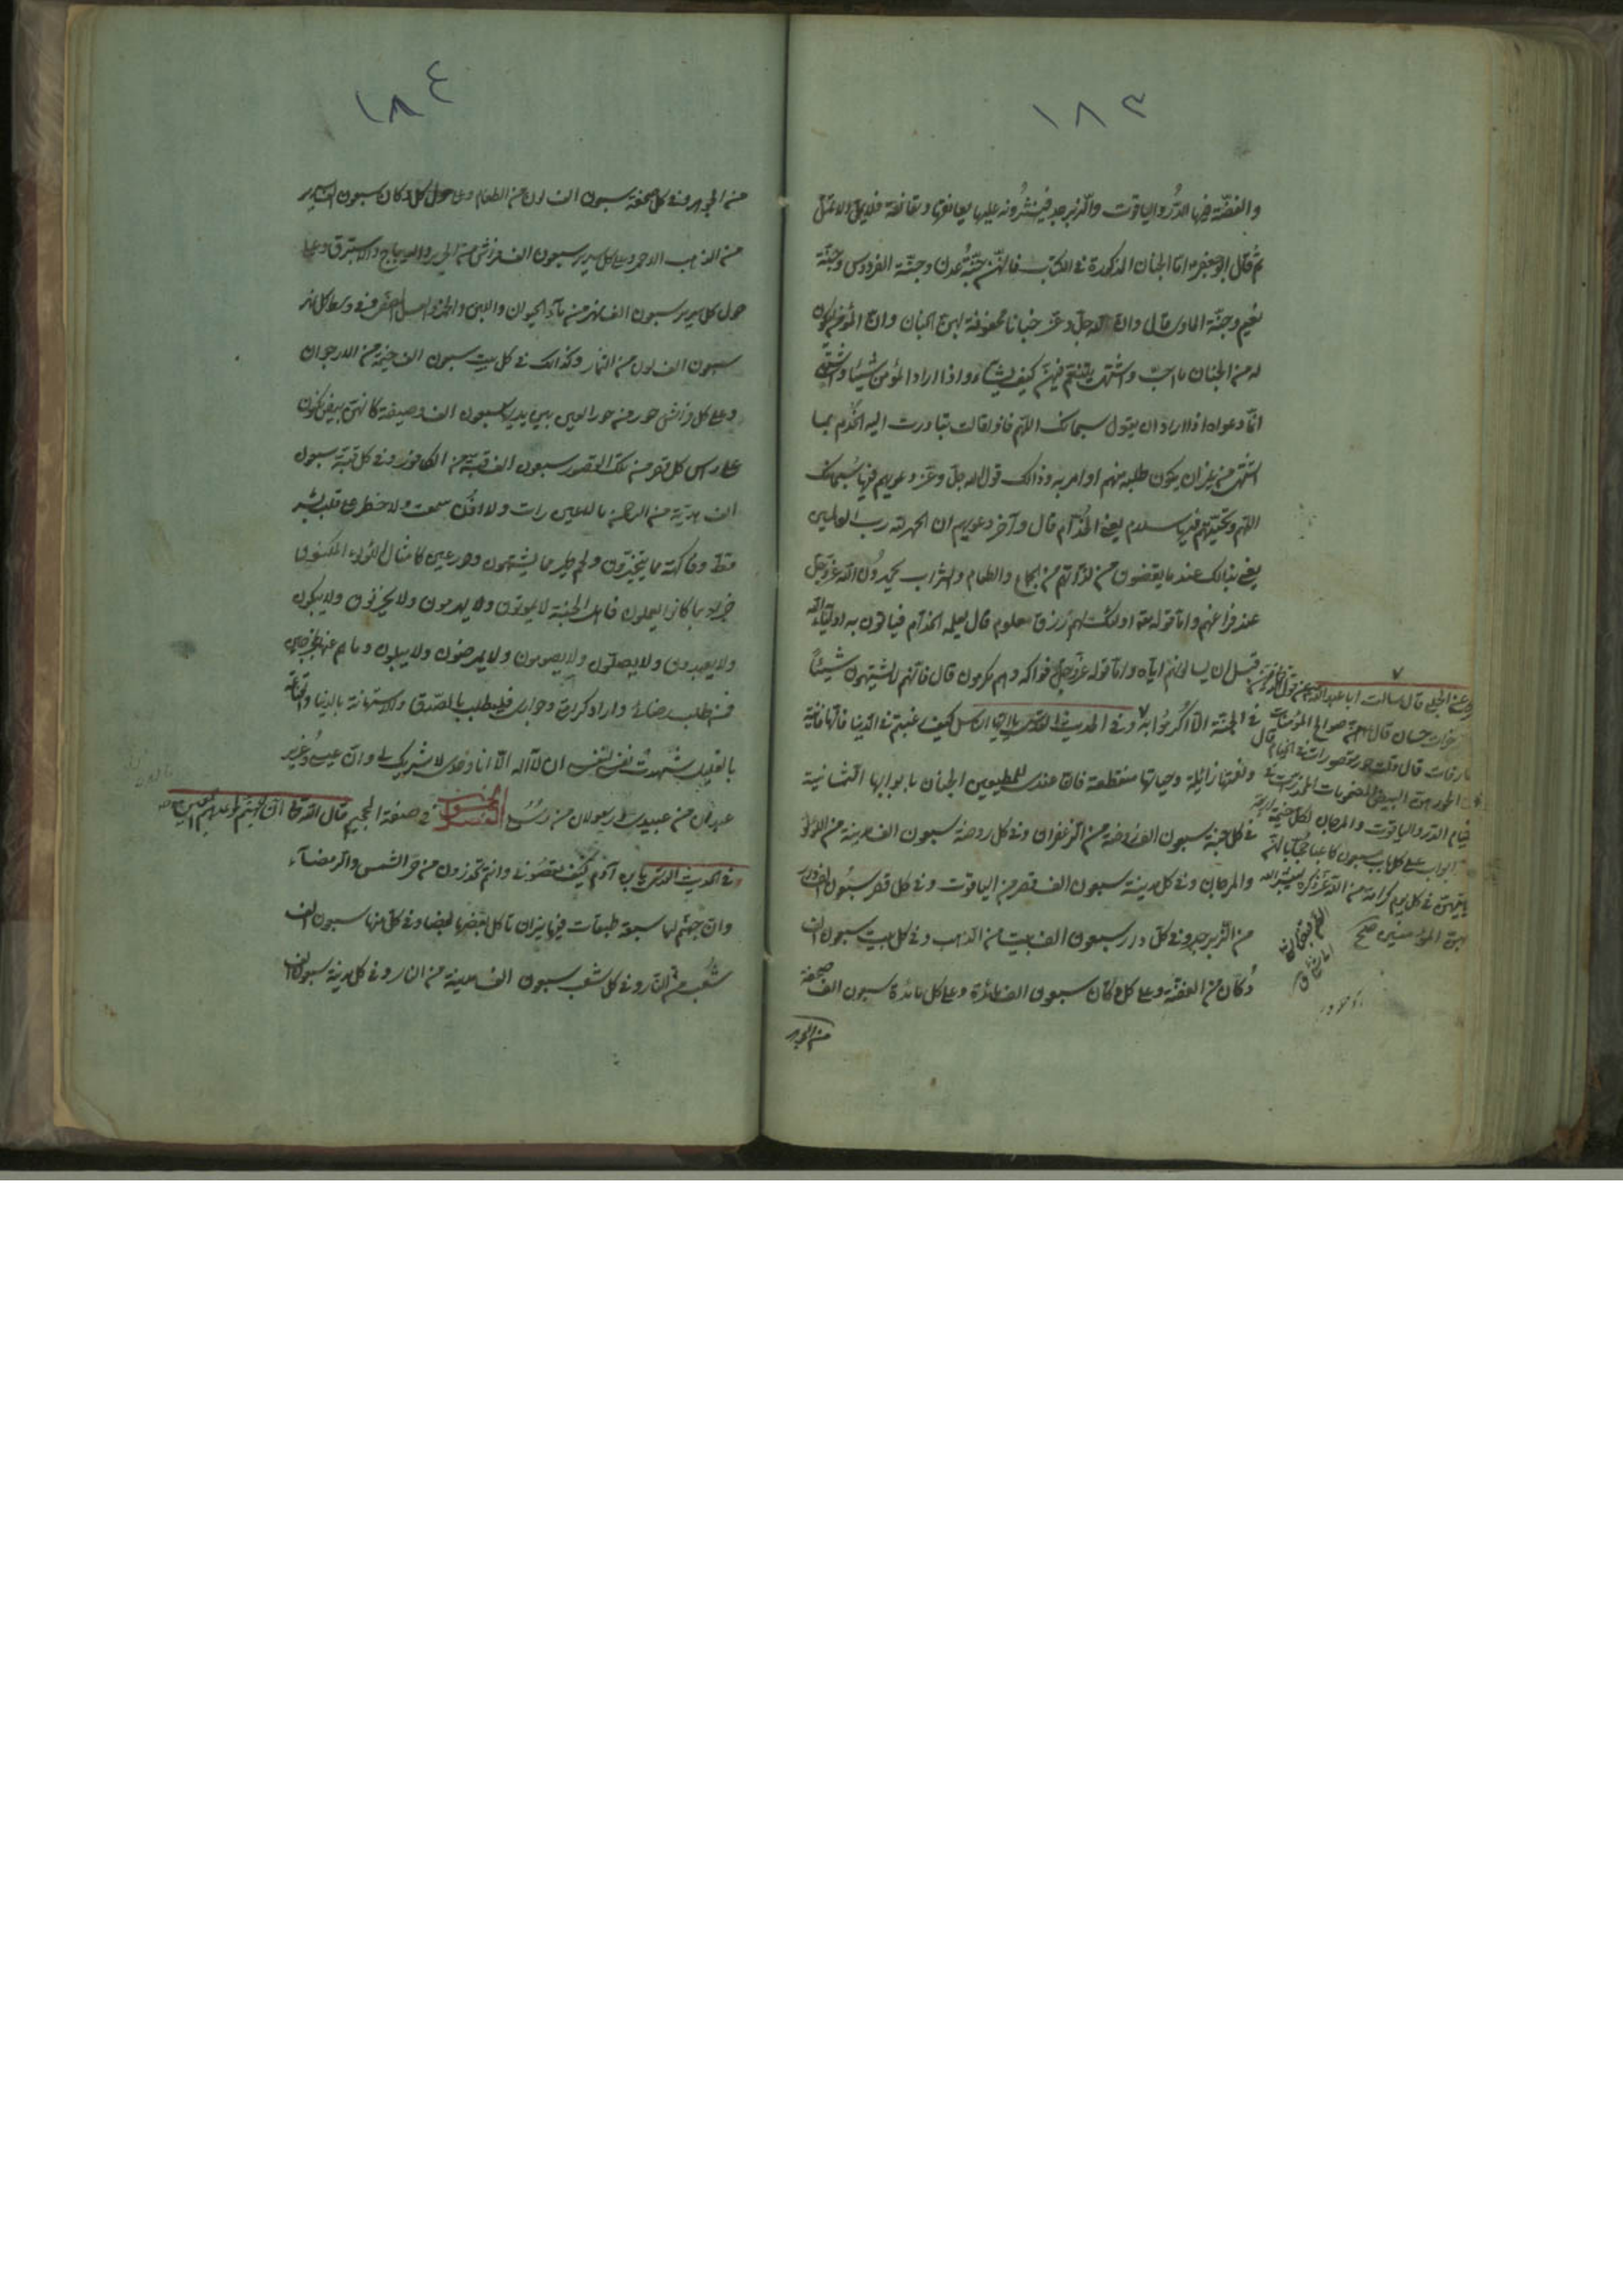 ١٨٣
والفضّة فيها الدّرّ والياقوت والزّبرجد فينثرونه عليها يعانقها وتعانقه فلا يملّ ولا تملّ
ثم قال ابو جعفر ع امّا الجنان المذكورة فى الكتاب فانّهنّ جنّة عدن وجنّة الفردوس وجنّة
نعيم وجنّة الماوى قال وانّ لله جلّ وعزّ جنانا محفوفة بهذه الجنان وانّ المؤمن ليكون
له من الجنان ما احبّ واشتهى يتنعّم فيهنّ كيف يشاء واذا اراد المؤمن شيئا واشتهى
انّما دعواه اذا اراد ان يقول سبحانك اللّهم فاذا قالها تبادرت اليه الخدّم بما
اشتهى من غير ان يكون طلبه منهم او امر به وذالك قول الله جلّ وعزّ دعويهم فيها سبحانك
اللهم وتحيّتهم فيها سلام يعنى الخدّام قال وآخر دعويهم ان الحمد لله رب العالمين
يعنى بذالك عند ما يقضون من لذّاتهم من الجماع والطعام والشراب يحمدون الله عزّ وجلّ
عند فراغهم وامّا قوله تعالى اولئك لهم رزق معلوم قال يعلمه الخدّام فياتون به اولياء الله
قبل ان يسالوهم ايّاه وامّا قوله عزّ وجلّ فواكه وهم مكرمون قال فانّهم لا يشتهون شيئاً
فى الجنّة الّا اكرموا به وفى الحديث القدسى كيف رغبتم فى الدّنيا فانّها فانية
ونعمتها زائلة وحياتها منقطعة فانّ عندى للمطيعين الجنان بابوابها الثمانية
فى كل جنة سبعون الف روضة من الزعفران وفى كل روضة سبعون الف مدينة من اللؤلؤ
والمرجان وفى كل مدينة سبعون الف قصر من الياقوت وفى كل قصر سبعون الف دار
من الزّبرجد وفى كلّ دار سبعون الف بيت من الذهب وفى كل بيت سبعون الف
دكان من الفضّة وعلى كل دكّان سبعون الف مائدة وعلى كل مائدة سبعون الف صحفة
من الجوهر
عن الحلبى قال سالت ابا عبد الله ع عن قول الله
خيرات حسان قال هنّ صوالح المؤمنات
قال قلت حور مقصورات فى الخيام قال
الحور هنّ البيض المضمومات المخدّرات فى
خيام الدّر والياقوت والمرجان لكل خيمة اربعة
ابواب على كل باب سبعون كاعبا حجّابا لهنّ
ياتيهنّ فى كل يوم كرامة من الله عزّ ذكره يبشّر الله
بهنّ المؤمنين صح
١٨٤
من الجوهر وفى كل صحفة سبعون الف لون من الطعام وعلى حول كل دكان سبعون الف سرير
من الذهب الاحمر وعلى كل سرير سبعون الف فراش من الحرير والديباج والاستبرق وعلى
حول كل سرير سبعون الف نهر من ماء الحيوان واللبن والخمر والعسل المصفى وفى وسط كل نهر
سبعون الف لون من الثمار وكذالك فى كل بيت سبعون الف خيمة من الارجوان
وعلى كل فراش حور من حور العين بين يديها سبعون الف وصيفة كانهنّ بيض مكنون
على راس كل قصر من تلك القصور سبعون الف قبة من الكافور وفى كل قبّة سبعون
الف هديّة من الرحمن ما لا عين رات ولا اذن سمعت ولا خطر على قلب بشر
قط وفاكهة مما يتخيّرون ولحم طير مما يشتهون وحور عين كامثال اللؤلؤ المكنون
جزاء بما كانوا يعملون فاهل الجنة لا يموتون ولا يهرمون ولا يحزنون ولا يبكون
ولا يعبدون ولا يصلّون ولا يصومون ولا يمرضون ولا يبولون وما هم عنها بمخرجين
فمن طلب رضائى واراد كرامتى وجوارى فليطلب بالصّدق والاستهانة بالدنيا والقناعة
بالقليل شهدت نفسى لنفسى ان لا اله الّا انا وحدى لا شريك لى وانّ عيسى وعزير
عبدان من عبيدى ورسولان من رسلى فى صفة الجحيم قال الله تعالى وانّ جهنّم لموعدهم اجمعين
وفى الحديث القدسى يا بن آدم كيف تعصونى وانتم تجزعون من حرّ الشمس والرمضاء
وانّ جهنّم لها سبعة طبقات فيها نيران تاكل بعضها بعضا وفى كلّ منها سبعون الف
شعب من النار وفى كل شعب سبعون الف مدينة من النار وفى كل مدينة سبعون الف